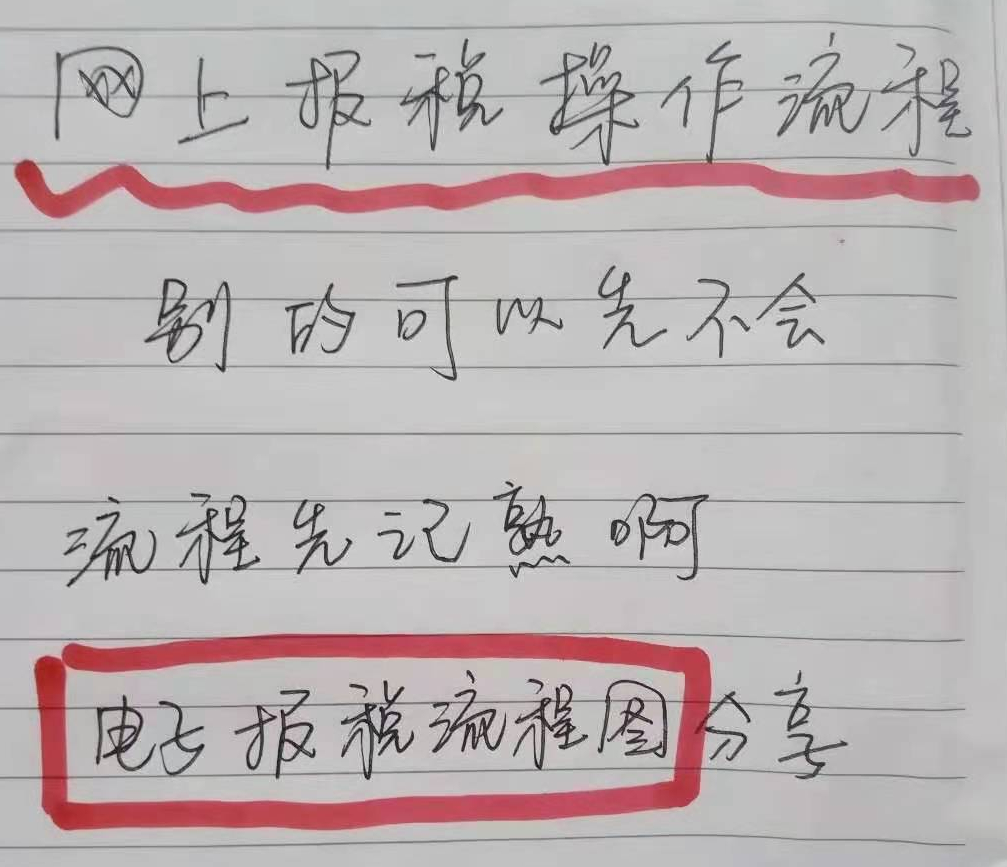 网上报税操作流程
别的可以先不会
流程先记熟啊
电子报税流程图分享